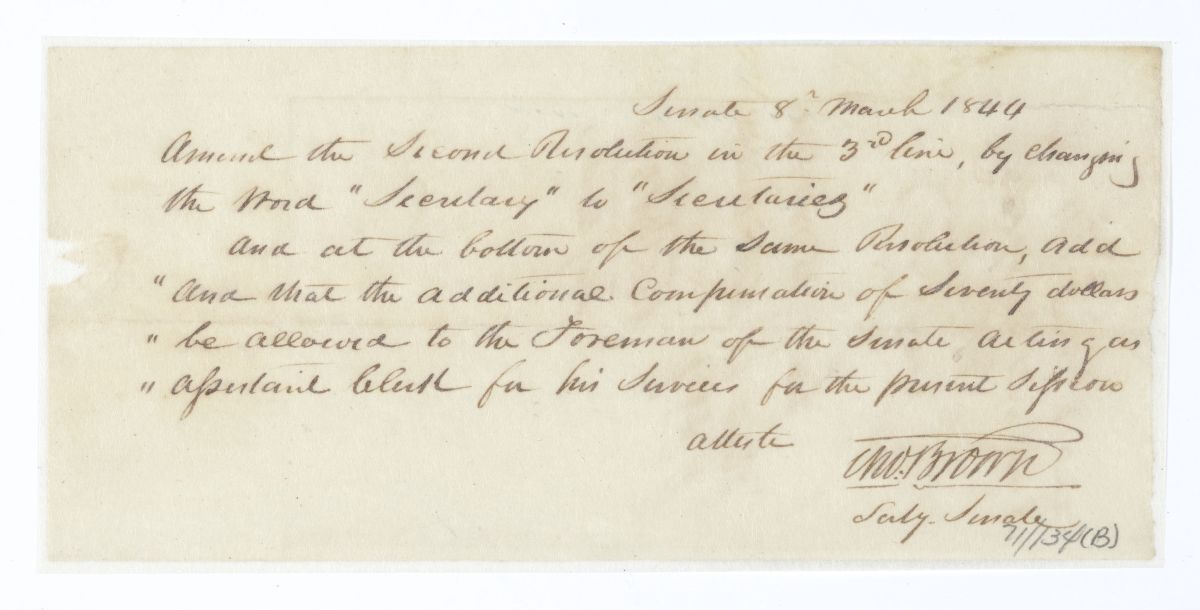 Senate 8th March 1844
Amend the Second Resolution in the 3rd line, by changing
the word "Secretary" to "Secretaries"
and at the bottom of the same Resolution, add
"And that the additional Compensation of Seventy dollars
" be allowed to the Foreman of the Senate acting as
" assistant Clerk for his Services for the present Session
atteste
Tho. Brown
Secty. Senate
71/134(B)